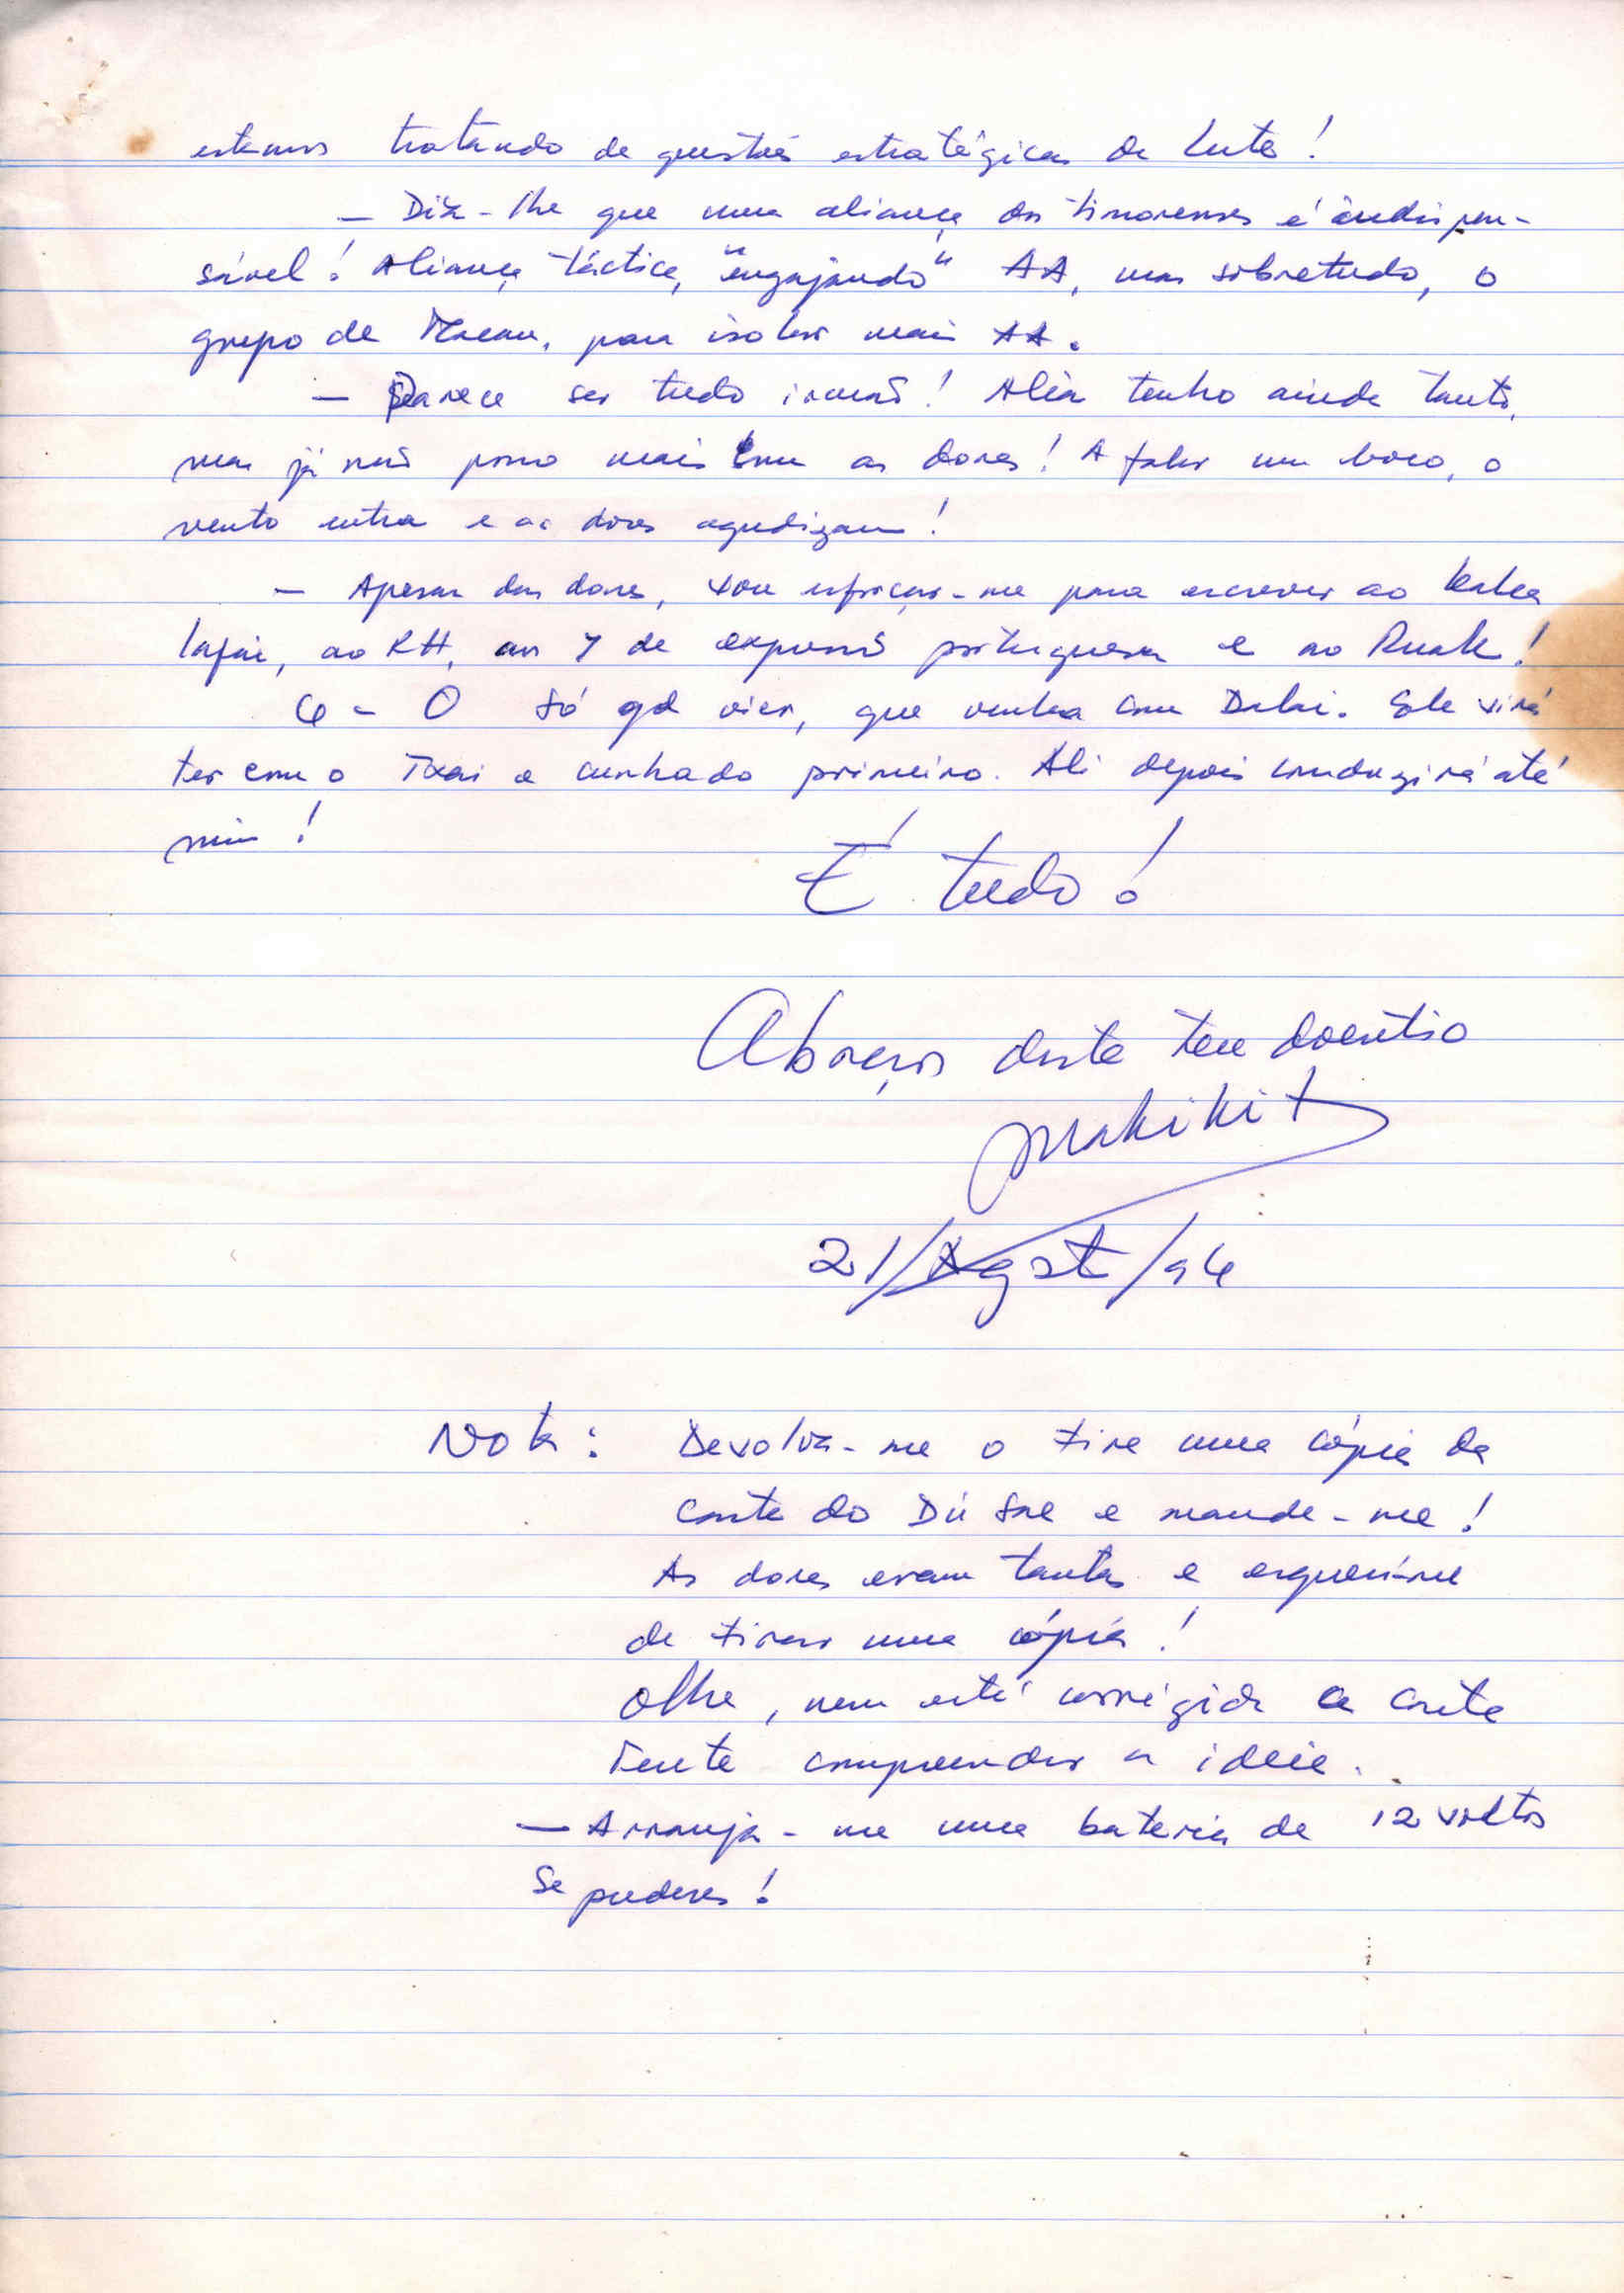 estamos tratando de questões estratégicas da luta!
— Diz-lhe que uma aliança dos timorenses é indispen-
sável! Aliança táctica, "engajando" AA, mas sobretudo, o
grupo de Macau, para isolar mais AA.
— Parece ser tudo irmão! Aliás tenho ainda tanto,
mas já não posso mais com as dores! A falar um boco, o
vento entra e as dores agudizam!
— Apesar das dores, vou esforçar-me para escrever ao
ao KH, aos 7 de expressão portuguesa e ao Ruak!
6 - O só qd vier, que venha com Delai. Ele virá
ter com o Txai o cunhado primeiro. Ali depois conduzirá até
mim!
É tudo!
Abraços deste teu doentio
Mahikit
21/Agst/94
Nota: Devolva-me o tire uma cópia da
carta do e mande-me!
As dores eram tantas e esqueci-me
de tirar uma cópia!
Olhe, nem está corrigida a carta
Tente compreender a ideia.
— Arranja-me uma bateria de 12 voltos
se puderes!